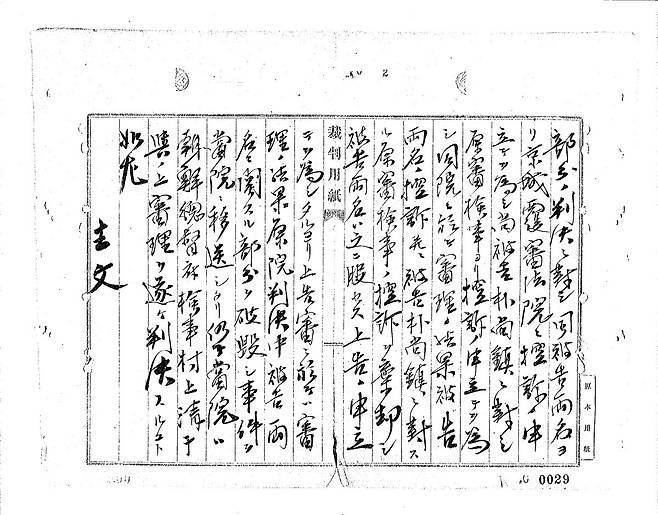 部分ノ判決ニ対シ同被告両名ヨ
リ京城覆審法院ニ控訴ノ申
立ヲ為シ尚被告朴尚鎮ニ対シ
原審検事ヨリ控訴ノ申立ヲ為
シ同院ニ於テ審理ノ結果被告
両名ノ控訴並ニ被告朴尚鎮ニ対ス
ル原審検事ノ控訴ヲ棄却シ
被告両名ハ之ニ服セス上告ノ申立
裁判用紙
ヲ為シタルヨリ上告審ニ於テハ審
理ノ結果原院判決中被告両
名ニ関スル部分ヲ破毀シ事件ヲ
当院ニ移送シタリ仍テ当院ハ
朝鮮総督府検事村上清干
與ノ上審理ヲ遂ケ判決スルコト
如左
主文
原本用紙
0029